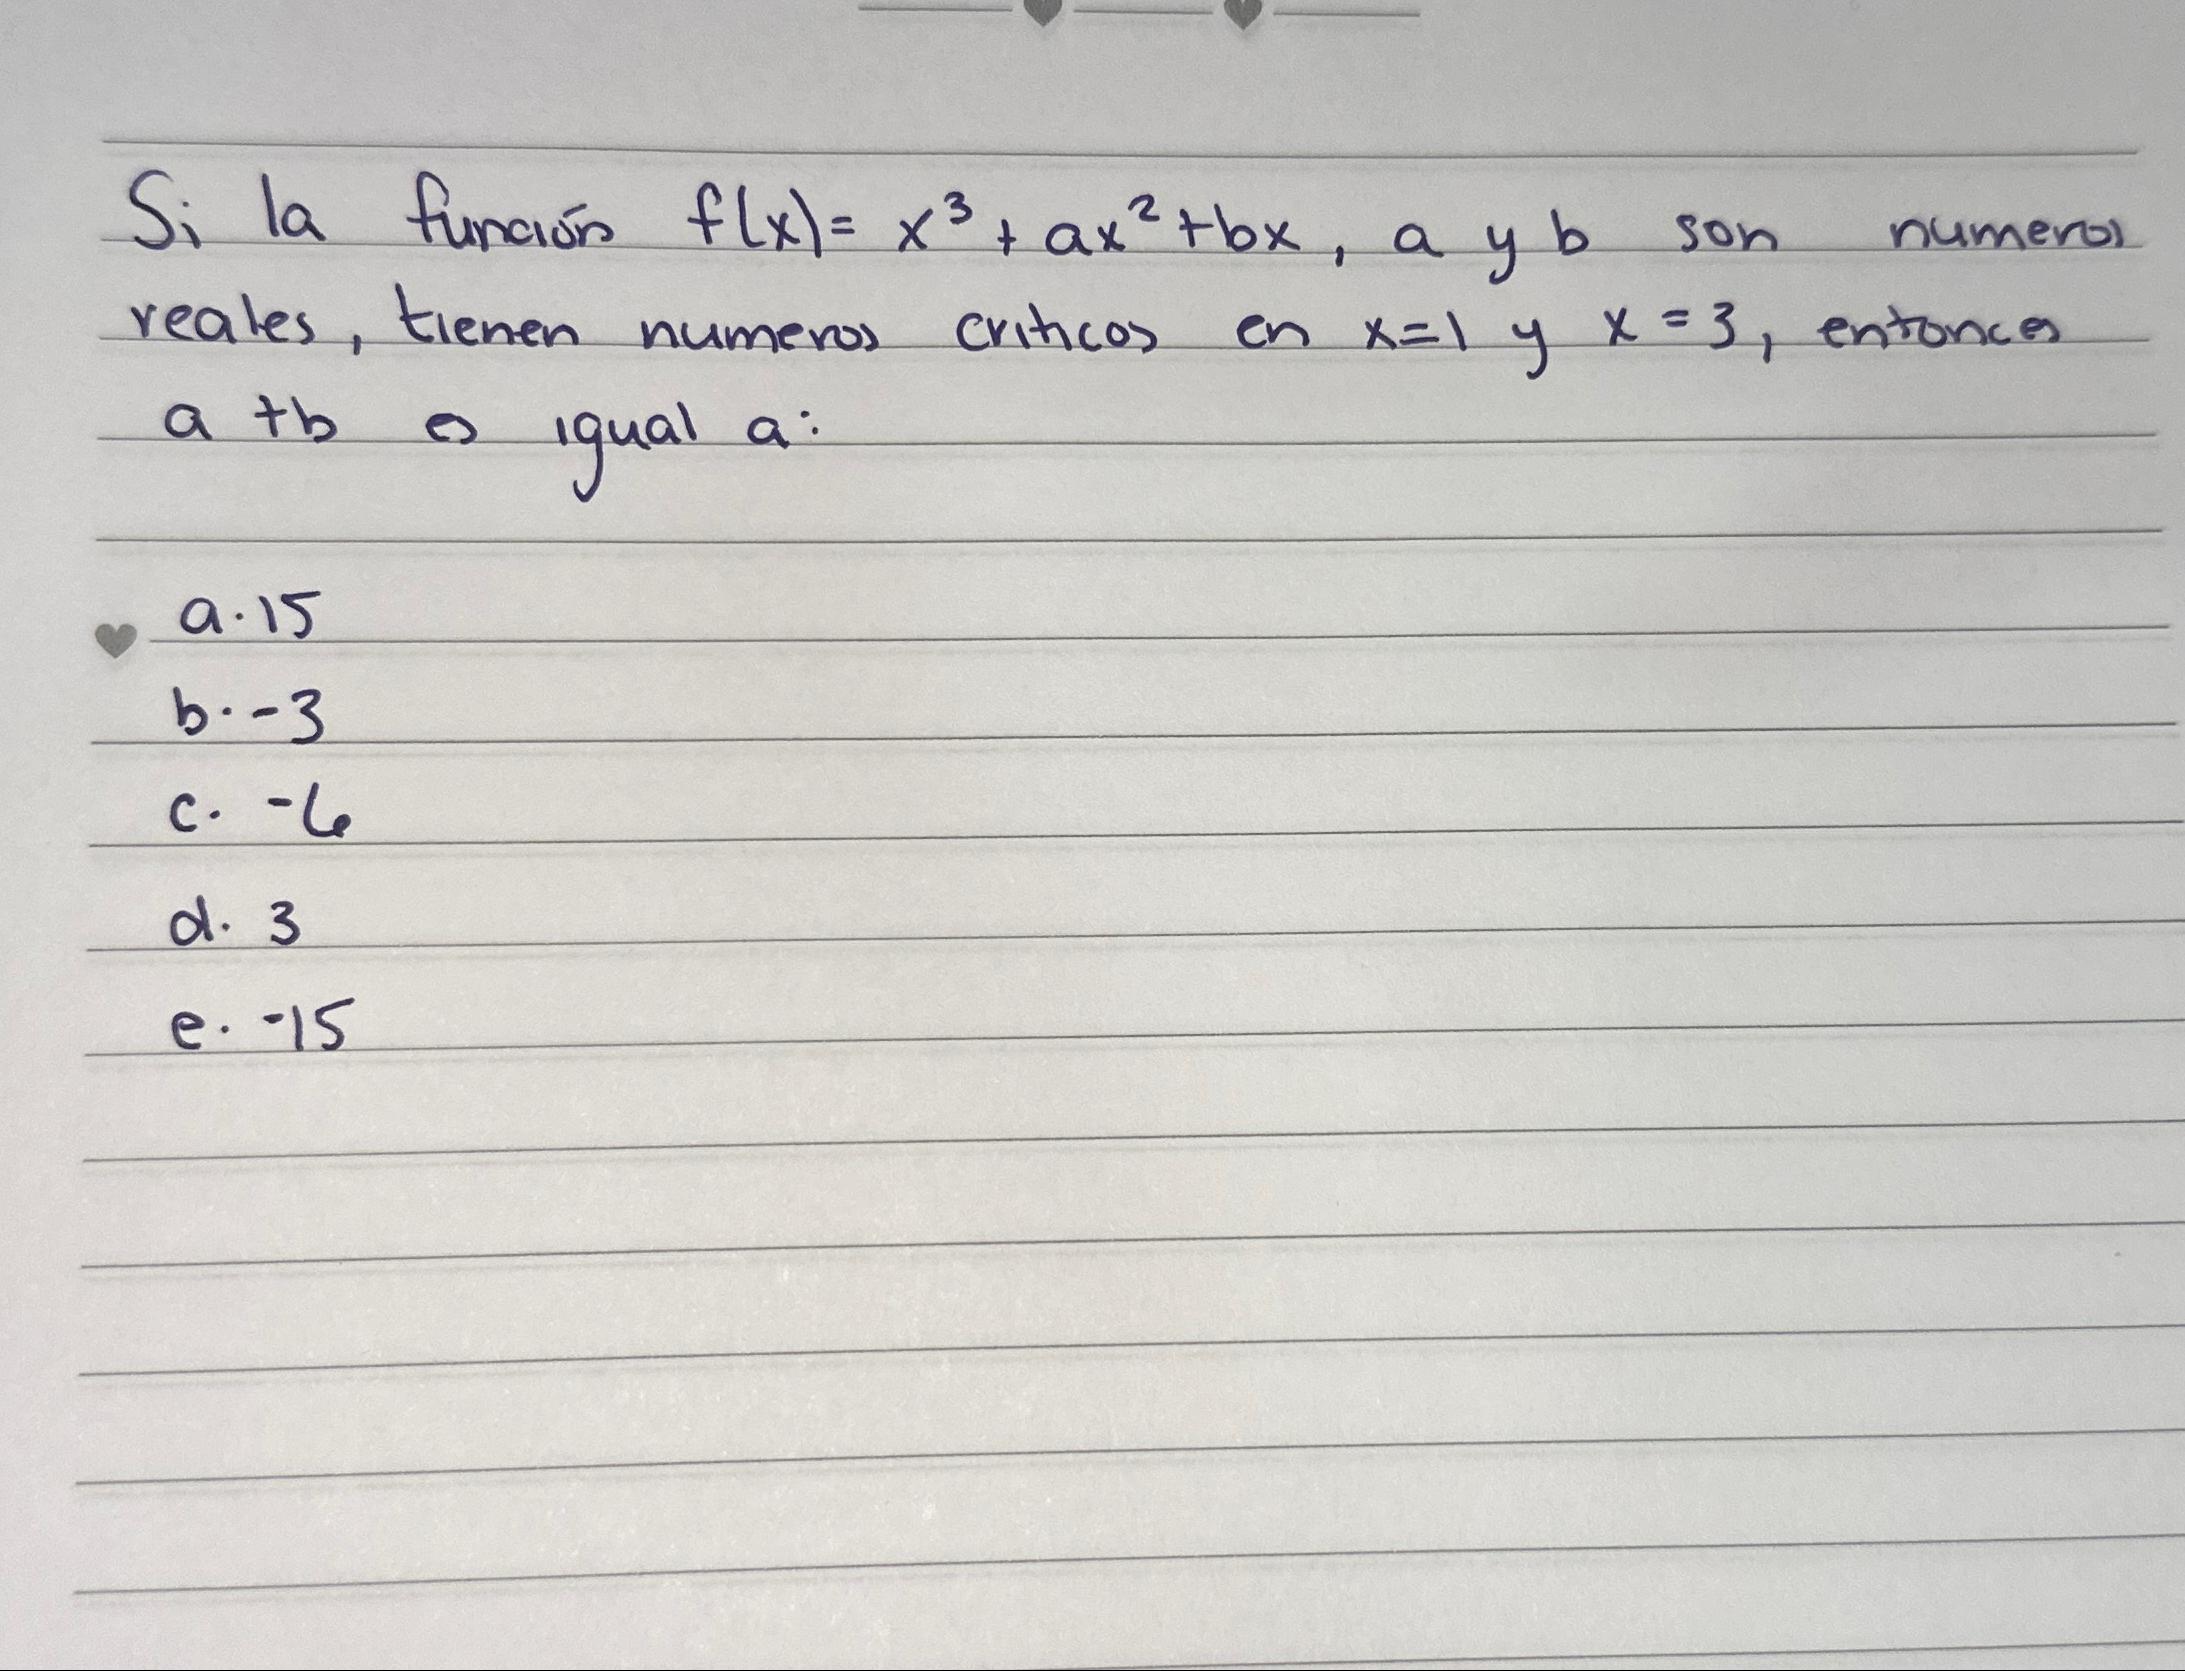 Si la función f(x)= x³ + ax² + bx, a y b son numeros
reales, tienen numeros criticos en x=1 y x=3, entonces
a + b es igual a:
a. 15
b. -3
c. -6
d. 3
e. -15